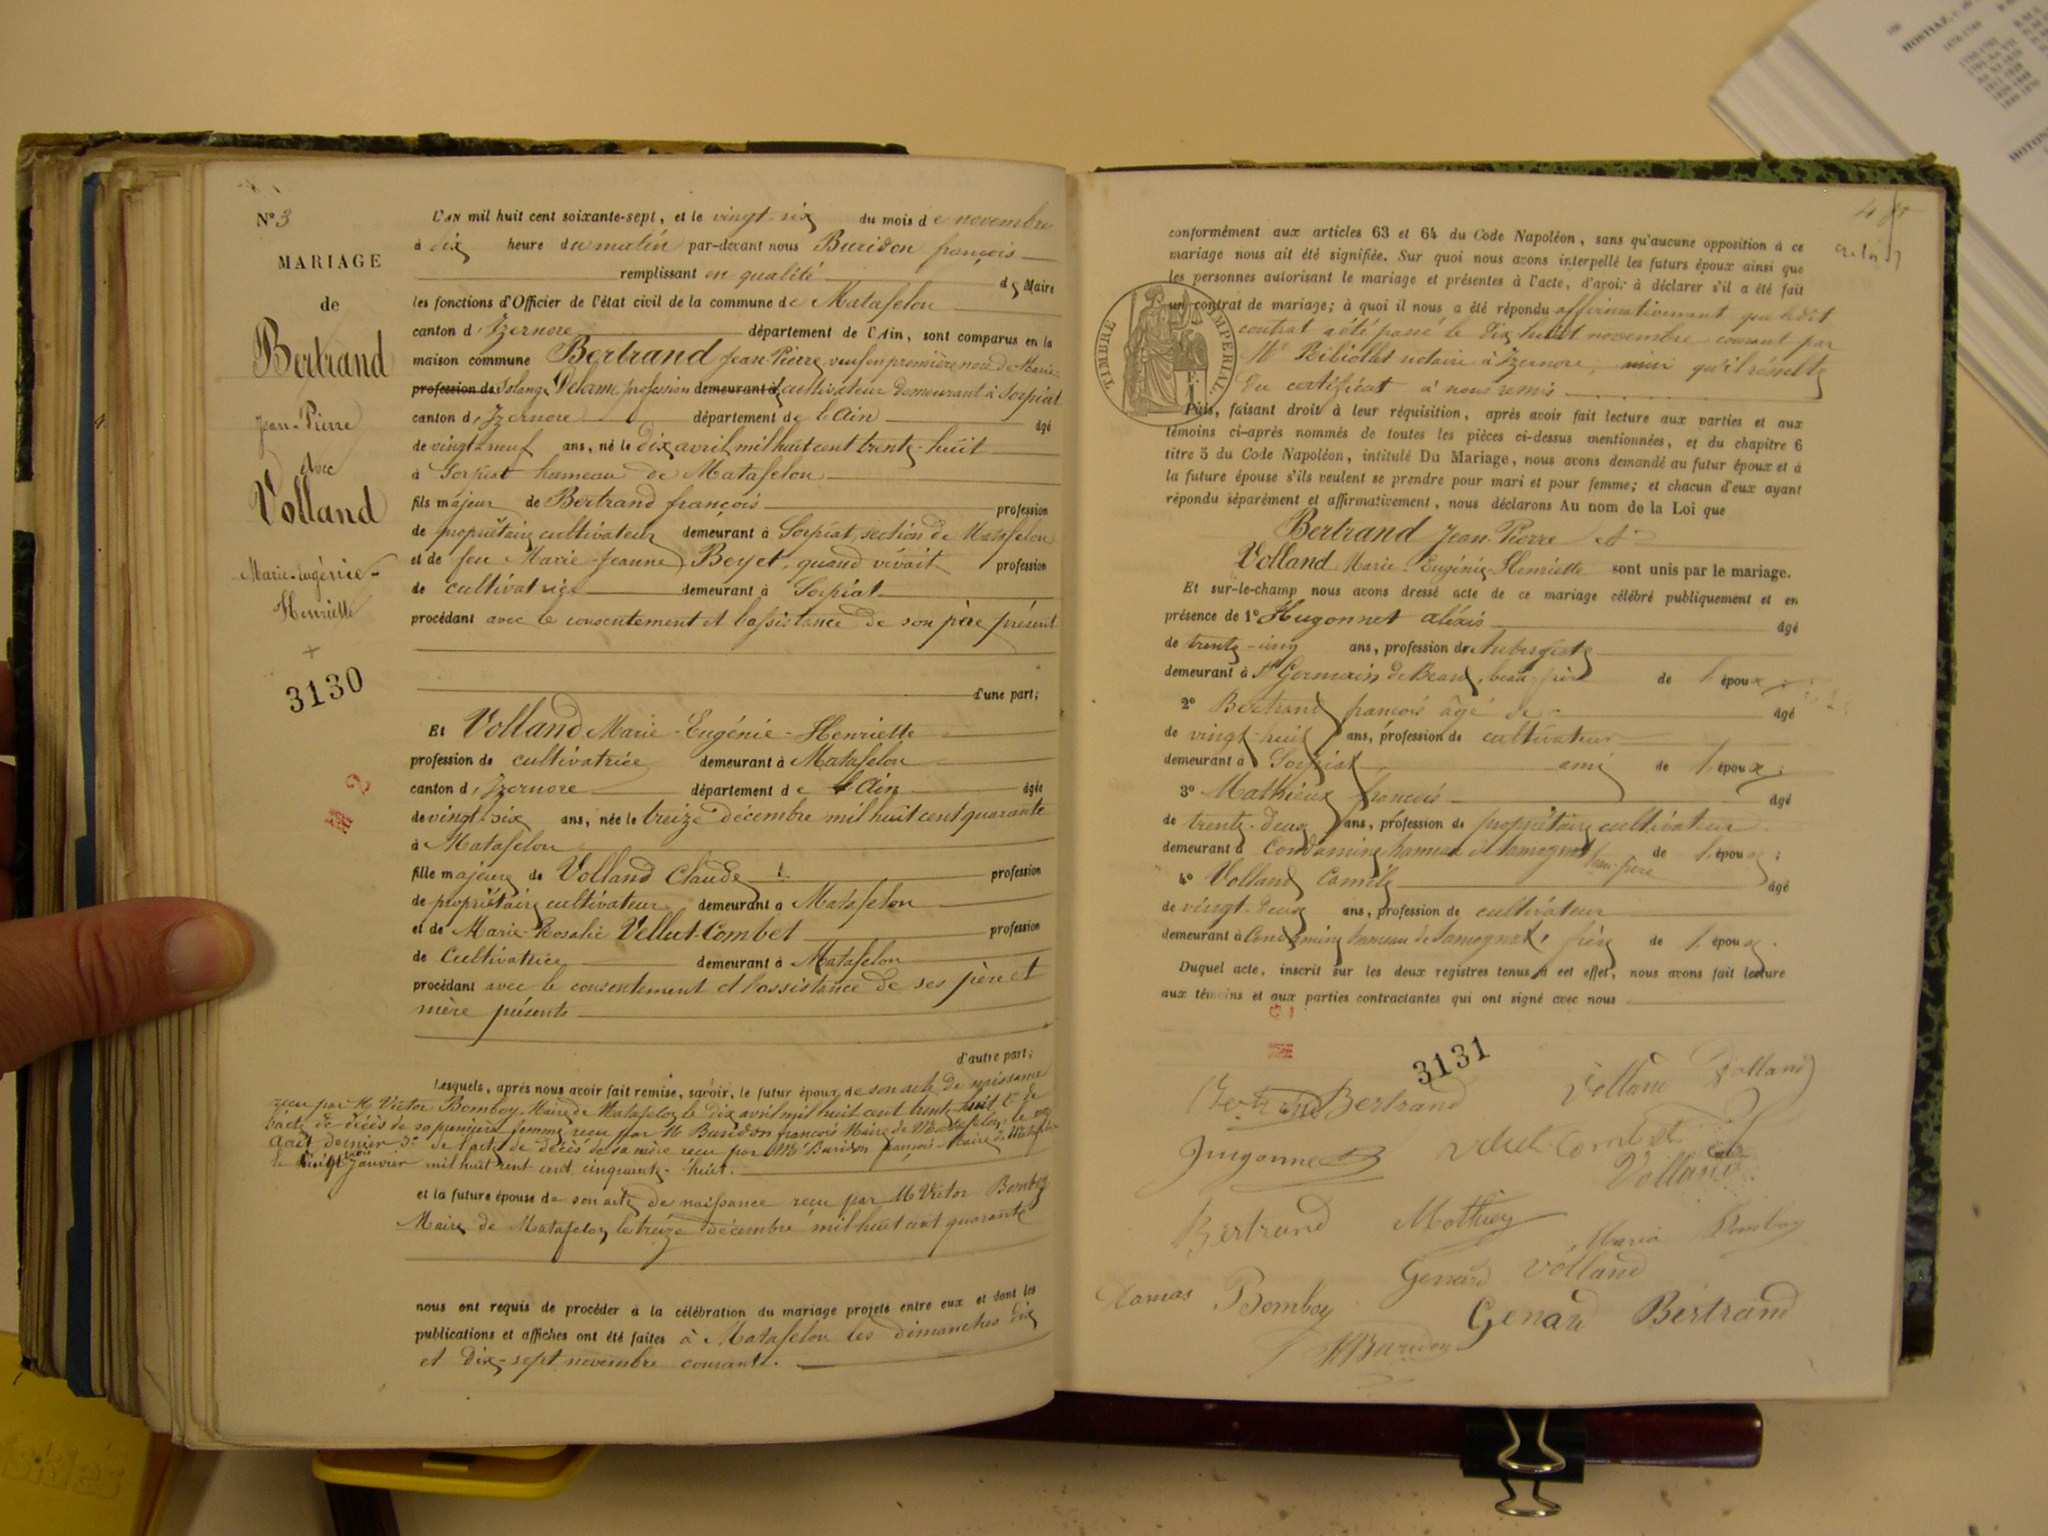 N° 3
MARIAGE
de
Bertrand
Jean-Pierre
avec
Volland
Marie-Eugénie-
Henriette
3130
L'AN mil huit cent soixante-sept, et le vingt-six du mois de novembre
à dix heure du matin par-devant nous Buridon françois
remplissant en qualité de Maire
les fonctions d'Officier de l'état civil de la commune de Matafelon
canton d'Izernore département de l'Ain, sont comparus en la
maison commune Bertrand Jean-Pierre, veuf en première noce de Marie
profession de Solange profession demeurant à cultivateur demeurant à Sorpiat
canton d'Izernore département de l'Ain âgé
de vingt-neuf ans, né le dix avril mil huit cent trente-huit
à Sorpiat hameau de Matafelon
fils majeur de Bertrand françois profession
de propriétaire cultivateur demeurant à Sorpiat, section de Matafelon
et de feu Marie-Jeanne Beyet, quand vivait profession
de cultivatrice demeurant à Sorpiat
procédant avec le consentement et l'assistance de son père présent
d'une part;
Et Volland Marie-Eugénie-Henriette
profession de cultivatrice demeurant à Matafelon
canton d'Izernore département de l'Ain âgée
de vingt-six ans, née le treize décembre mil huit cent quarante
à Matafelon
fille majeure de Volland Claude profession
de propriétaire cultivateur demeurant à Matafelon
et de Marie-Rosalie Vellut-Combet profession
de Cultivatrice demeurant à Matafelon
procédant avec le consentement et l'assistance de ses père et
mère présents
d'autre part;
Lesquels, après nous avoir fait remise, savoir, le futur époux de son acte de naissance
reçu par M Victor Bomboy Maire de Matafelon le dix avril mil huit cent trente-huit 2° de
l'acte de décès de sa première femme reçu par M Buridon françois Maire de Matafelon le
août dernier 3° de l'acte de décès de sa mère reçu par M Buridon françois Maire de Matafelon
le vingt janvier mil huit cent cinquante-huit.
et la future épouse de son acte de naissance reçu par M Victor Bomboy
Maire de Matafelon le treize décembre mil huit cent quarante
nous ont requis de procéder à la célébration du mariage projeté entre eux et dont les
publications et affiches ont été faites à Matafelon les dimanches dix
et dix-sept novembre courant.
conformément aux articles 63 et 64 du Code Napoléon, sans qu'aucune opposition à ce
mariage nous ait été signifiée. Sur quoi nous avons interpellé les futurs époux ainsi que
les personnes autorisant le mariage et présentes à l'acte, d'avoir à déclarer s'il a été fait
un contrat de mariage; à quoi il nous a été répondu affirmativement que ledit
contrat a été passé le dix huit novembre courant par
Me Ribiollet notaire à Izernore, ainsi qu'il résulte
du certificat à nous remis
TIMBRE IMPÉRIAL
1 F.
Puis, faisant droit à leur réquisition, après avoir fait lecture aux parties et aux
témoins ci-après nommés de toutes les pièces ci-dessus mentionnées, et du chapitre 6
titre 5 du Code Napoléon, intitulé Du Mariage, nous avons demandé au futur époux et à
la future épouse s'ils veulent se prendre pour mari et pour femme; et chacun d'eux ayant
répondu séparément et affirmativement, nous déclarons Au nom de la Loi que
Bertrand Jean-Pierre et
Volland Marie-Eugénie-Henriette sont unis par le mariage.
Et sur-le-champ nous avons dressé acte de ce mariage célébré publiquement et en
présence de 1° Hugonnet aléxis âgé
de trente-cinq ans, profession de Aubergiste
demeurant à St Germain de Beard, beau-frère de l'époux;
2° Bertrand françois âgé de âgé
de vingt-huit ans, profession de cultivateur
demeurant à Sorpiat ami de l'époux;
3° Mathieux françois âgé
de trente-deux ans, profession de propriétaire cultivateur
demeurant à Condamine hameau de Samognat beau-frère de l'épouse;
4° Volland Camille âgé
de vingt-deux ans, profession de cultivateur
demeurant à Condamine hameau de Samognat, frère de l'épouse.
Duquel acte, inscrit sur les deux registres tenus à cet effet, nous avons fait lecture
aux témoins et aux parties contractantes qui ont signé avec nous
3131
Bertrand Volland Volland
Hugonnet Vellut Combet
Volland
Bertrand Mathieu Maria Bomboy
Genard Volland
Bomboy Genard Bertrand
Buridon